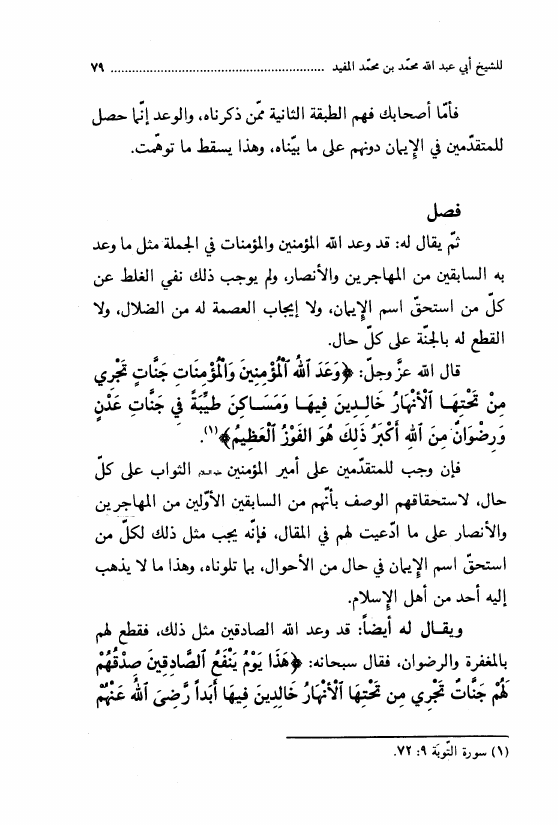 للشيخ أبي عبد الله محمّد بن محمّد المفيد ............................................................ ٧٩
فأمّا أصحابك فهم الطبقة الثانية ممّن ذكرناه، والوعد إنّما حصل
للمتقدّمين في الإيمان دونهم على ما بيّناه، وهذا يسقط ما توهّمت.
فصل
ثمّ يقال له: قد وعد الله المؤمنين والمؤمنات في الجملة مثل ما وعد
به السابقين من المهاجرين والأنصار، ولم يوجب ذلك نفي الغلط عن
كلّ من استحقّ اسم الإيمان، ولا إيجاب العصمة له من الضلال، ولا
القطع له بالجنّة على كلّ حال.
قال الله عزّ وجلّ: ﴿وَعَدَ ٱللهُ ٱلْمُؤْمِنِينَ وَٱلْمُؤْمِنَاتِ جَنَّاتٍ تَجْرِي
مِنْ تَحْتِهَا ٱلْأَنْهَارُ خَالِدِينَ فِيهَا وَمَسَاكِنَ طَيِّبَةً فِي جَنَّاتِ عَدْنٍ
وَرِضْوَانٌ مِنَ ٱللهِ أَكْبَرُ ذَلِكَ هُوَ ٱلفَوْزُ ٱلْعَظِيمُ﴾(١).
فإن وجب للمتقدّمين على أمير المؤمنين الثواب على كلّ
حال، لاستحقاقهم الوصف بأنّهم من السابقين الأوّلين من المهاجرين
والأنصار على ما ادّعيت لهم في المقال، فإنّه يجب مثل ذلك لكلّ من
استحقّ اسم الإيمان في حال من الأحوال، بما تلوناه، وهذا ما لا يذهب
إليه أحد من أهل الإسلام.
ويقال له أيضاً: قد وعد الله الصادقين مثل ذلك، فقطع لهم
بالمغفرة والرضوان، فقال سبحانه: ﴿هَذَا يَوْمُ يَنْفَعُ ٱلصَّادِقِينَ صِدْقُهُمْ
لَهُمْ جَنَّاتٌ تَجْرِي مِن تَحْتِهَا ٱلْأَنْهَارُ خَالِدِينَ فِيهَا أَبَداً رَّضِىَ ٱللهُ عَنْهُمْ
(١) سورة التّوبَة ٩: ٧٢.